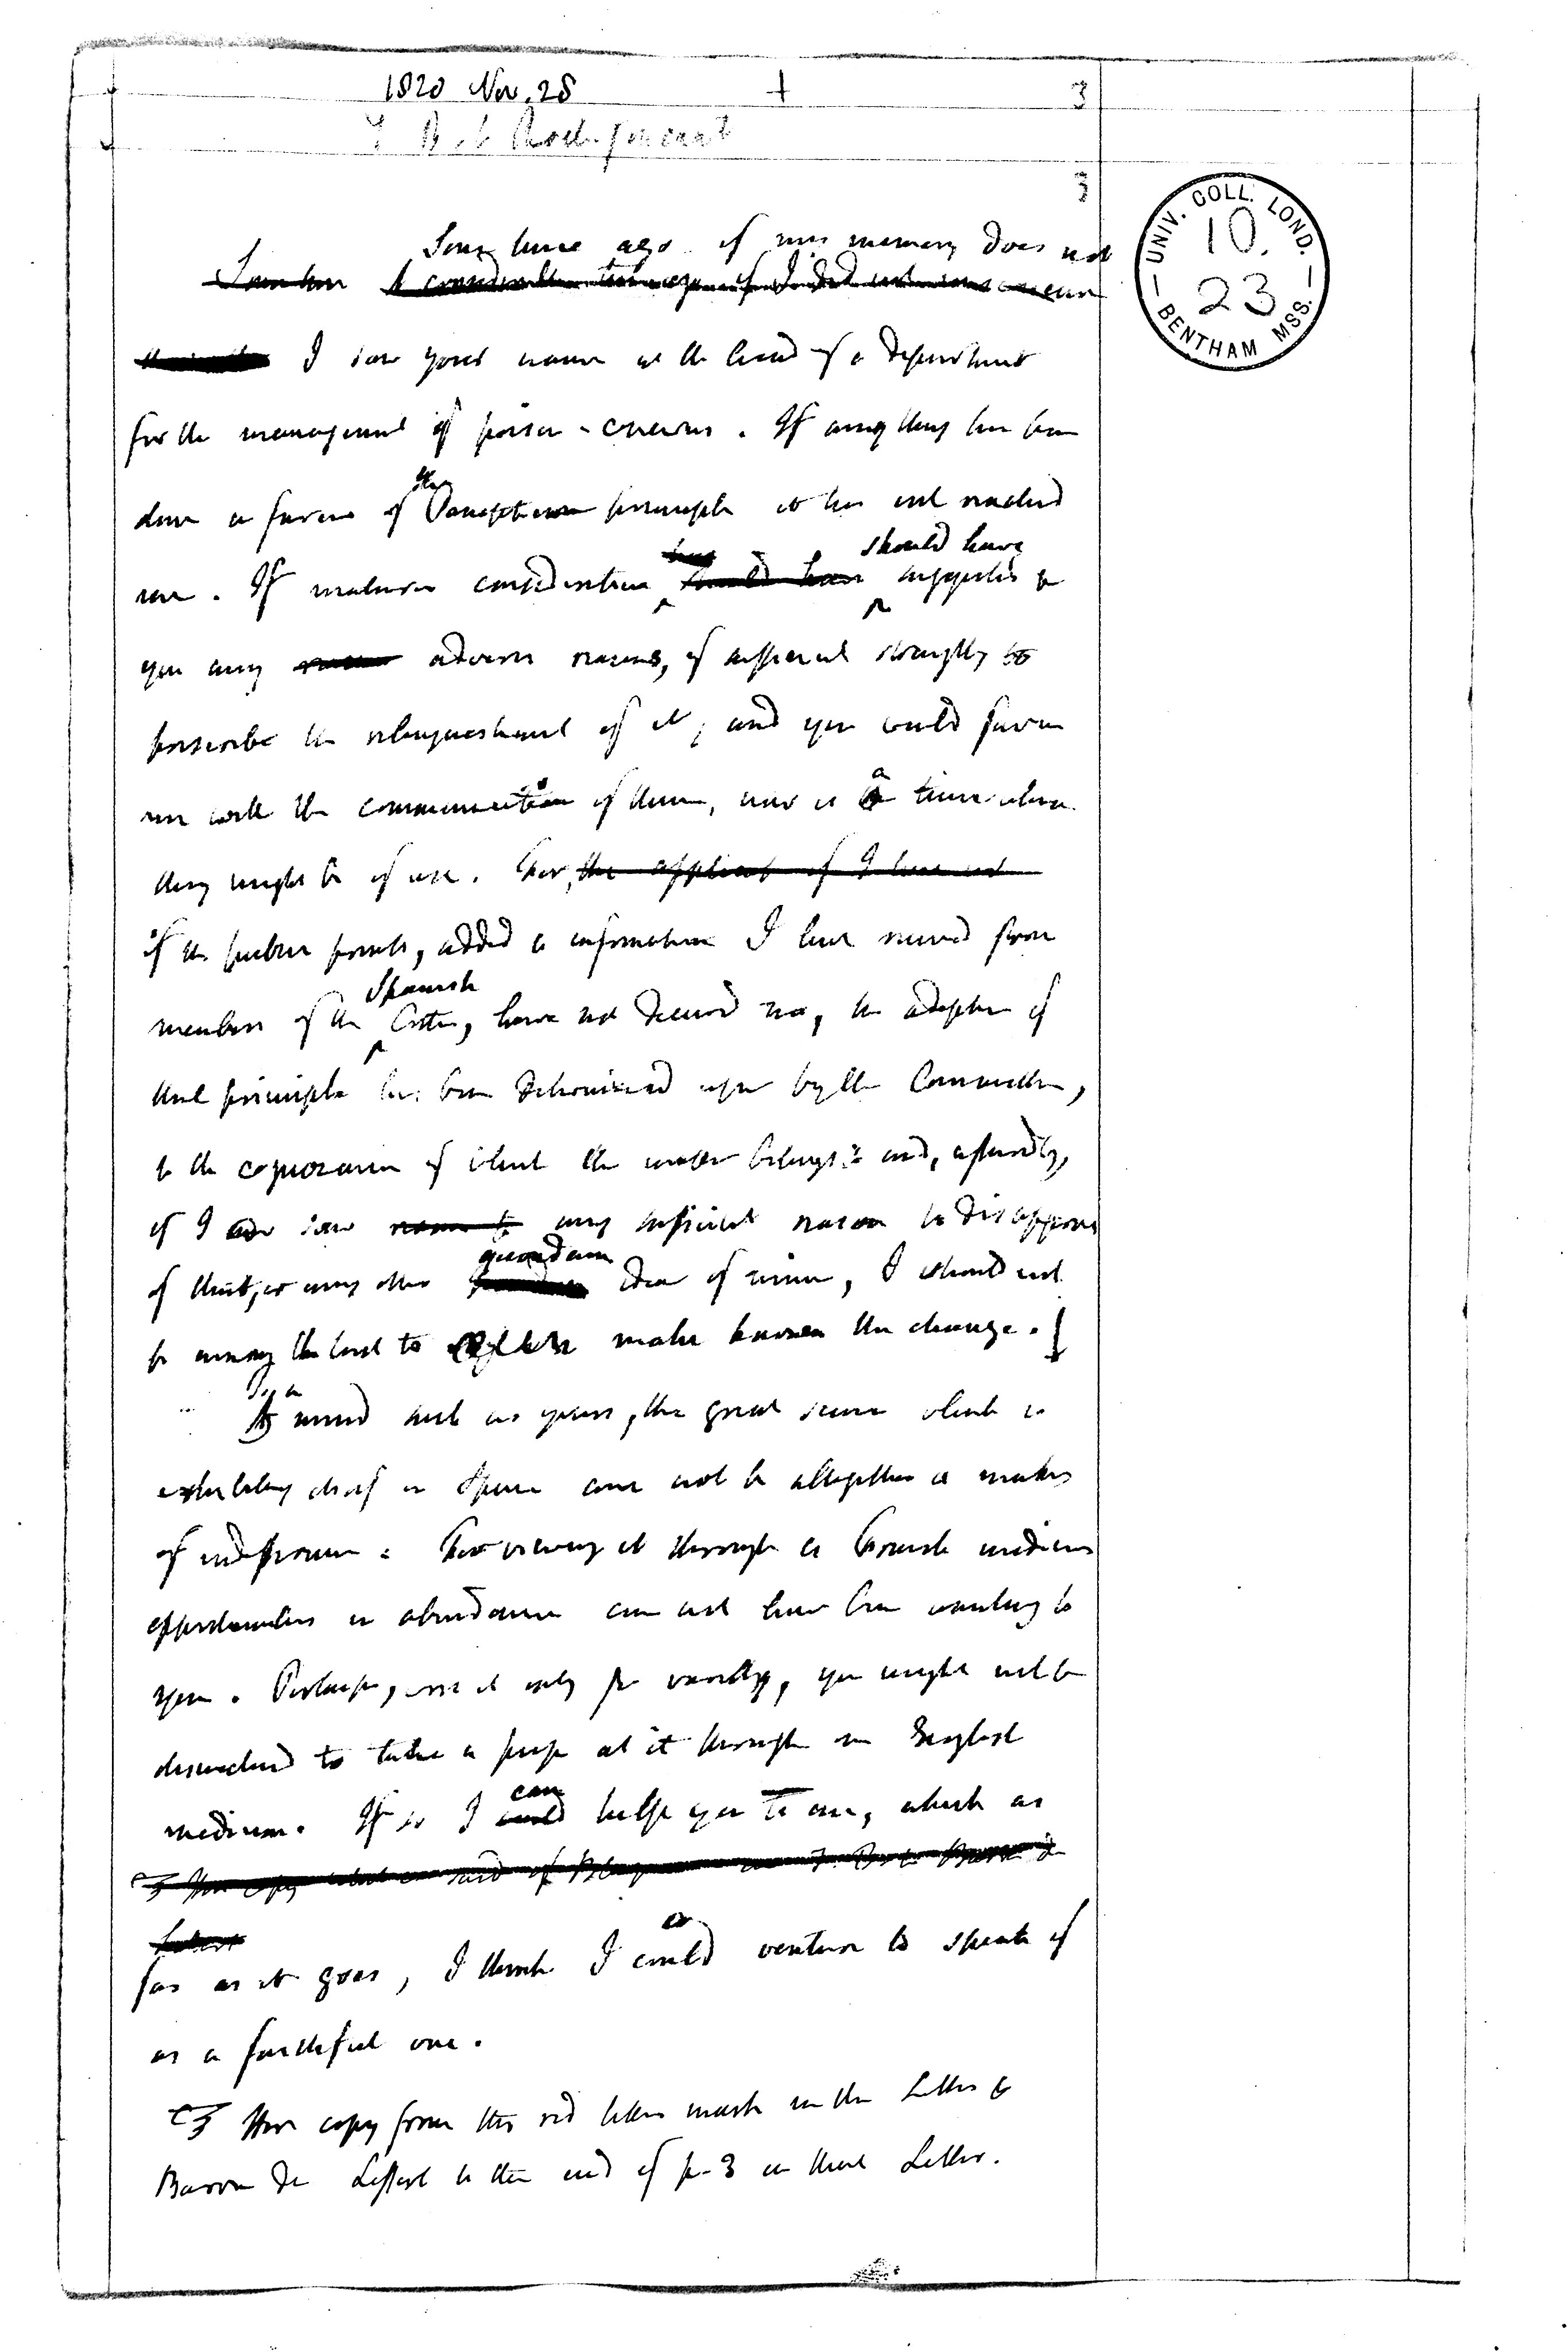 1820 Nov. 28 + 3
3
UNIV. COLL. LOND.
10.
23
BENTHAM MSS.
Some time ago if my memory does not
I saw your name at the head of a department
for the management of prison-concerns. If any thing has been
done in favour of the Panopticon principle it has not reached
me. If maturer consideration should have suggested to
you any adverse reasons, of sufficient strength to
prescribe the relinquishment of it, and you could favour
me with the communication of them, now is a time when
they might be of use. For, the applicat if I have not
if the public prints, added to information I have received from
members of the Spanish Cortes, have not deceived me, the adoption of
that principle has been determined upon by the Committee,
to the cognizance of which the matter belongs: and, assuredly,
if I saw any sufficient reason to disapprove
of that, or any other quondam idea of mine, I should not
be among the last to make known the change.
To a mind such as yours, the great scene which is
exhibiting itself in Spain can not be altogether a matter
of indifference: For viewing it through a French medium
opportunities in abundance can not have been wanting to
you. Perhaps, were it only for variety, you might not be
disinclined to take a peep at it through an English
medium. If so I can help you to one, which as
far as it goes, I think I could venture to speak of
as a faithful one.
Here copy from the red letter mark in the Letter to
Baron De Lessert to the end of p. 3 in that Letter.